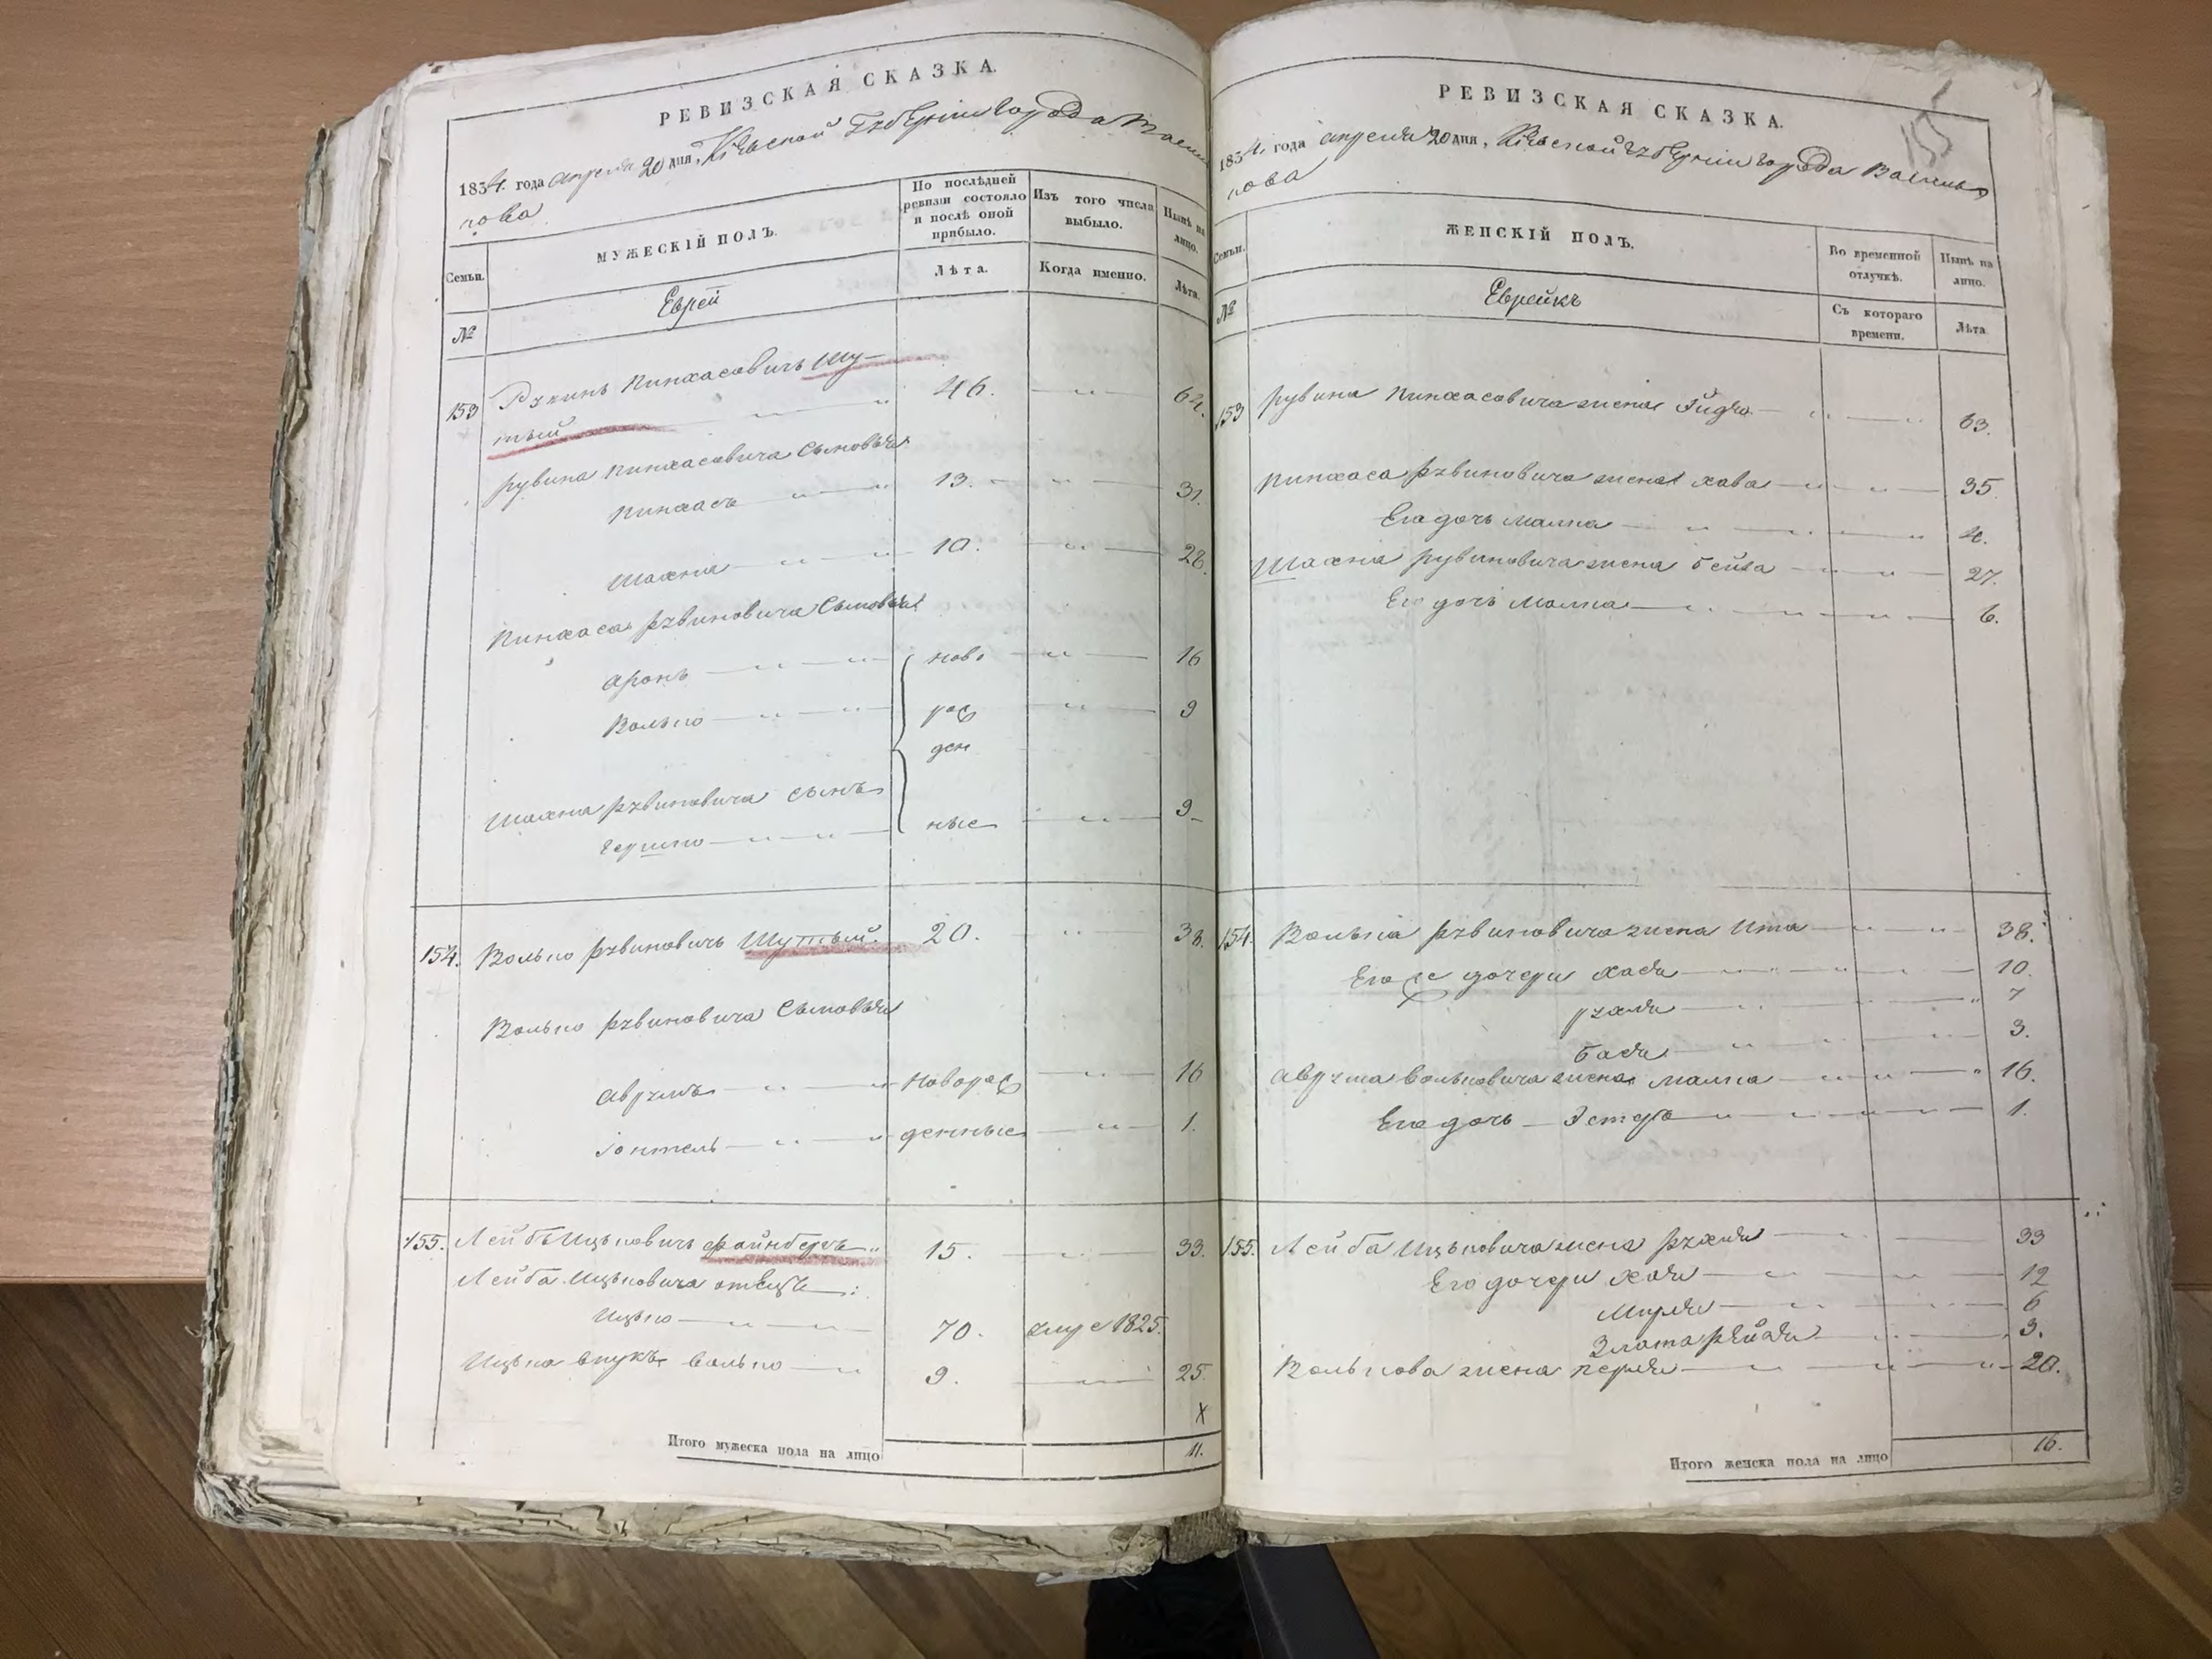 РЕВИЗСКАЯ СКАЗКА.
1834. года апреля 20 дня, Кіевской Губерніи города Василь
кова
Семьи.
МУЖЕСКІЙ ПОЛЪ.
По послѣдней ревизіи состояло и послѣ оной прибыло.
Изъ того числа выбыло.
Нынѣ на лицо.
Лѣта.
Когда именно.
Лѣта.
№
Еврей
153 Рувинъ Пинхасовичъ Шу-
тый 46. 64.
Рувина Пинхасовича Сыновья
Пинхасъ 13. 31.
Шахна 10. 28.
Пинхаса Рувиновича Сыновья
Аронъ ново 16
Волько рож 9
ден
Шахна Рувиновича сынъ
Гершко ные 9
154. Волько Рувиновичъ Шутый. 20. 38.
Волько Рувиновича Сыновья
Аврумъ новорож 16
денные 1.
155. Лейба Ицьковичъ Файнбергъ 15. 33.
Лейба Ицьковича отецъ:
Ицько 70. умре 1825.
Ицька внукъ Волько 9. 25.
X
Итого мужеска пола на лицо 11.
РЕВИЗСКАЯ СКАЗКА.
1834. года апреля 20 дня, Кіевской Губерніи города Василь
кова
Семьи.
ЖЕНСКІЙ ПОЛЪ.
Во временной отлучкѣ.
Нынѣ на лицо.
№
Еврейкъ
Съ котораго времени.
Лѣта
153 Рувина Пинхасовича жена 63.
Пинхаса Рувиновича жена Хава 35.
Его дочь Малка 4.
Шахна Рувиновича жена Бейла 27.
Его дочь Малка 6.
154. Волька Рувиновича жена Ита 38.
Его же дочери Хася 10.
Рухля 7
Бася 3.
Аврума Вольковича жена Малка 16.
Его дочь Эстеръ 1.
155. Лейба Ицьковича жена Рухля 33
Его дочери Хая 12
Мирля 6
Злата Рейзя 3.
Волькова жена Перля 20.
Итого женска пола на лицо 16.